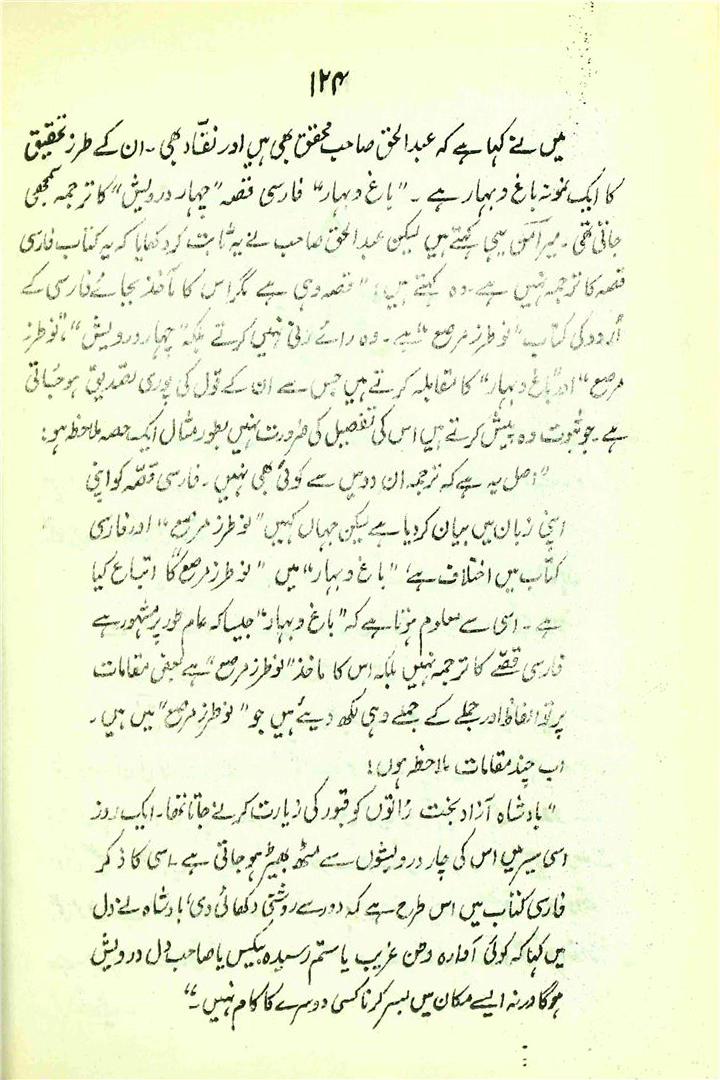 ۱۲۴
میں نے کہا ہے کہ عبدالحق صاحب محقق بھی ہیں اور نقّاد بھی ۔ ان کے طرز تحقیق
کا ایک نمونہ باغ و بہار ہے ۔ "باغ و بہار" فارسی قصہ "چہار درویش" کا ترجمہ سمجھی
جاتی تھی ۔ میر امن یہی کہتے ہیں لیکن عبدالحق صاحب نے یہ ثابت کر دکھایا کہ یہ کتاب فارسی
قصہ کا ترجمہ نہیں ہے ۔ وہ کہتے ہیں: "قصہ وہی ہے مگر اس کا مآخذ بجائے فارسی کے
اُردو کی کتاب "نو طرز مرصع" ہے ۔ وہ رائے زنی نہیں کرتے بلکہ "چہار درویش"، "نو طرز
مرصع" اور "باغ و بہار" کا مقابلہ کرتے ہیں جس سے ان کے قول کی پوری تصدیق ہو جاتی
ہے ۔ جو ثبوت وہ پیش کرتے ہیں اس کی تفصیل کی ضرورت نہیں بطور مثال ایک حصہ ملاحظہ ہو:
"اصل یہ ہے کہ ترجمہ ان دو میں سے کوئی بھی نہیں ۔ فارسی قصّہ کو اپنی
اپنی زبان میں بیان کر دیا ہے لیکن جہاں کہیں "نو طرز مرصع" اور فارسی
کتاب میں اختلاف ہے، "باغ و بہار" میں "نو طرز مرصع" کا اتباع کیا
ہے ۔ اسی سے معلوم ہوتا ہے کہ "باغ و بہار" جیسا کہ عام طور پر مشہور ہے
فارسی قصّے کا ترجمہ نہیں بلکہ اس کا ماخذ "نو طرز مرصع" ہے بعض مقامات
پر تو الفاظ اور جملے کے جملے وہی لکھ دیئے ہیں جو "نو طرز مرصع" میں ہیں ۔
اب چند مقامات ملاحظہ ہوں:
"بادشاہ آزاد بخت راتوں کو قبور کی زیارت کرنے جاتا تھا ۔ ایک روز
اسی سیر میں اس کی چار درویشوں سے مٹھ بھیڑ ہو جاتی ہے ۔ اسی کا ذکر
فارسی کتاب میں اس طرح ہے کہ دور سے روشنی دکھائی دی، بادشاہ نے دل
میں کہا کہ کوئی آوارہ وطن غریب یا ستم رسیدہ بیکس یا صاحب دل درویش
ہوگا ورنہ ایسے مکان میں بسر کرنا کسی دوسرے کا کام نہیں ۔"